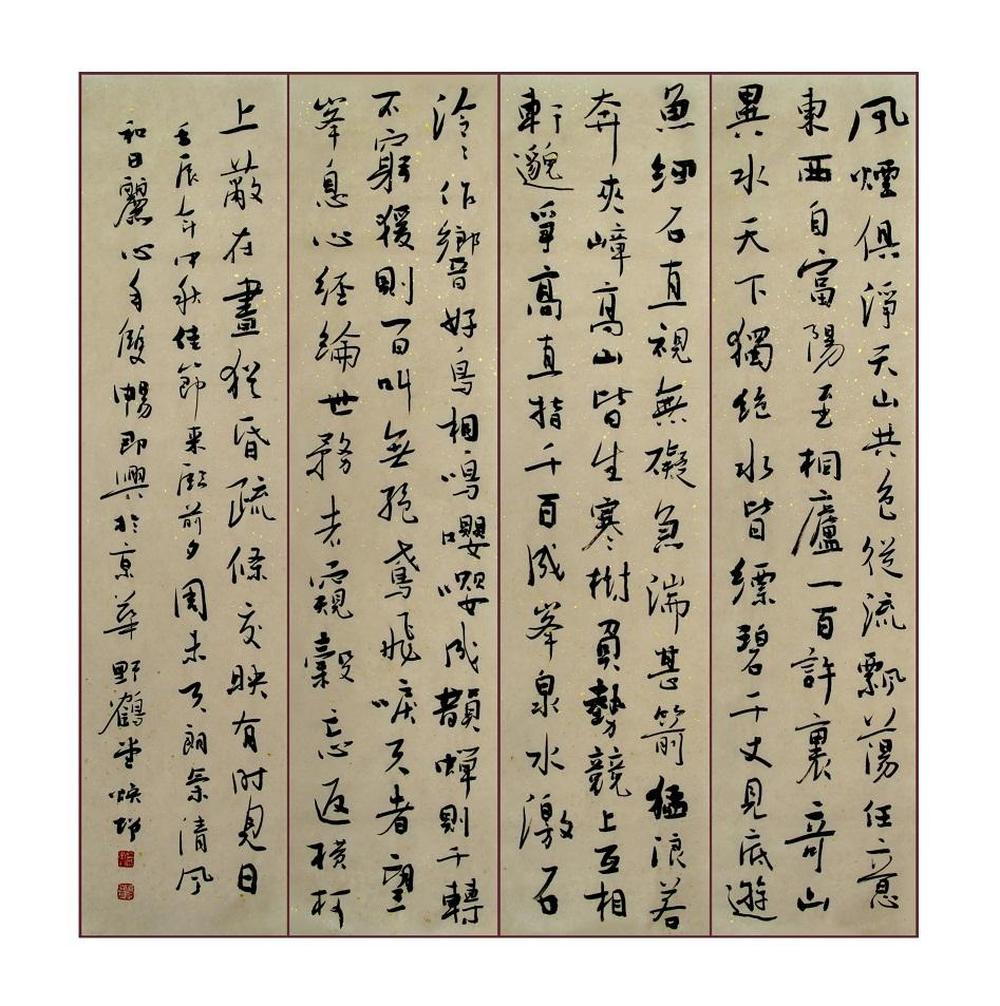 風煙俱淨天山共色從流飄蕩任意
東西自富陽至桐廬一百許裏奇山
異水天下獨絶水皆縹碧千丈見底遊
魚細石直視無礙急湍甚箭猛浪若
奔夾嶂高山皆生寒樹負勢競上互相
軒邈爭高直指千百成峯泉水激石
泠〻作響好鳥相鳴嚶嚶成韻蟬則千轉
不窮猨則百叫無絶鳶飛唳天者望
峯息心經綸世務者窺穀忘返橫柯
上蔽在晝猶昏疏條交映有時見日
壬辰年中秋佳節來臨前夕周末天朗氣清風
和日麗心手雙暢即興於京華野鶴堂